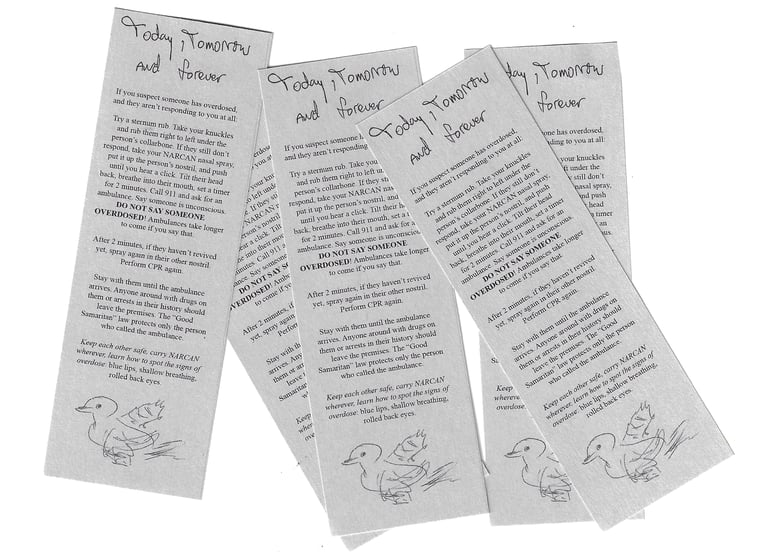 Today, Tomorrow
And forever
If you suspect someone has overdosed,
and they aren't responding to you at all:
Try a sternum rub. Take your knuckles
and rub them right to left under the
person's collarbone. If they still don't
respond, take your NARCAN nasal spray,
put it up the person's nostril, and push
until you hear a click. Tilt their head
back, breathe into their mouth, set a timer
for 2 minutes. Call 911 and ask for an
ambulance. Say someone is unconscious.
DO NOT SAY SOMEONE
OVERDOSED! Ambulances take longer
to come if you say that.
After 2 minutes, if they haven't revived
yet, spray again in their other nostril.
Perform CPR again.
Stay with them until the ambulance
arrives. Anyone around with drugs on
them or arrests in their history should
leave the premises. The "Good
Samaritan" law protects only the person
who called the ambulance.
Keep each other safe, carry NARCAN
wherever, learn how to spot the signs of
overdose: blue lips, shallow breathing,
rolled back eyes.
Today, Tomorrow
And forever
If you suspect someone has
and they aren't responding
Try a sternum rub. Take your
and rub them right to left
person's collarbone. If they still
respond, take your NARCAN
put it up the person's nostril,
until you hear a click. Tilt their
back, breathe into their mouth, set a
for 2 minutes. Call 911 and ask
ambulance. Say someone is unconscious.
DO NOT SAY SOMEONE
OVERDOSED! Ambulances take longer
to come if you say that.
After 2 minutes, if they haven't revived
yet, spray again in their other nostril.
Perform CPR again.
Stay with them until the ambulance
arrives. Anyone around with drugs on
them or arrests in their history should
leave the premises. The "Good
Samaritan" law protects only the person
who called the ambulance.
Keep each other safe, carry NARCAN
wherever, learn how to spot the signs of
overdose: blue lips, shallow breathing,
rolled back eyes.
Today, Tomorrow
And forever
If you suspect someone has overdosed,
and they aren't responding to you at all:
Try a sternum rub. Take your knuckles
and rub them right to left under the
person's collarbone. If they still don't
respond, take your NARCAN nasal spray,
put it up the person's nostril, and push
until you hear a click. Tilt their head
back, breathe into their mouth, set a timer
for 2 minutes. Call 911 and ask for an
ambulance. Say someone is unconscious.
DO NOT SAY SOMEONE
OVERDOSED! Ambulances take longer
to come if you say that.
After 2 minutes, if they haven't revived
yet, spray again in their other nostril.
Perform CPR again.
Stay with them until the ambulance
arrives. Anyone around with drugs on
them or arrests in their history should
leave the premises. The "Good
Samaritan" law protects only the person
who called the ambulance.
Keep each other safe, carry NARCAN
wherever, learn how to spot the signs of
overdose: blue lips, shallow breathing,
rolled back eyes.
Tomorrow
forever
has overdosed,
to you at all:
knuckles
under the
still don't
nasal spray,
and push
head
a timer